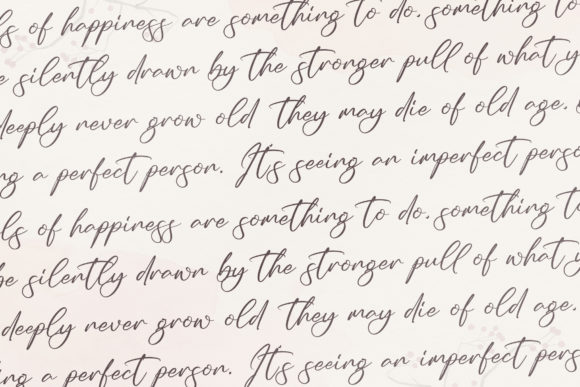 ls of happiness are something to do. something to
be silently drawn by the stronger pull of what y
deeply never grow old they may die of old age.
ng a perfect person. It's seeing an imperfect perso
ls of happiness are something to do. something to
be silently drawn by the stronger pull of what y
deeply never grow old they may die of old age.
ing a perfect person. It's seeing an imperfect perso